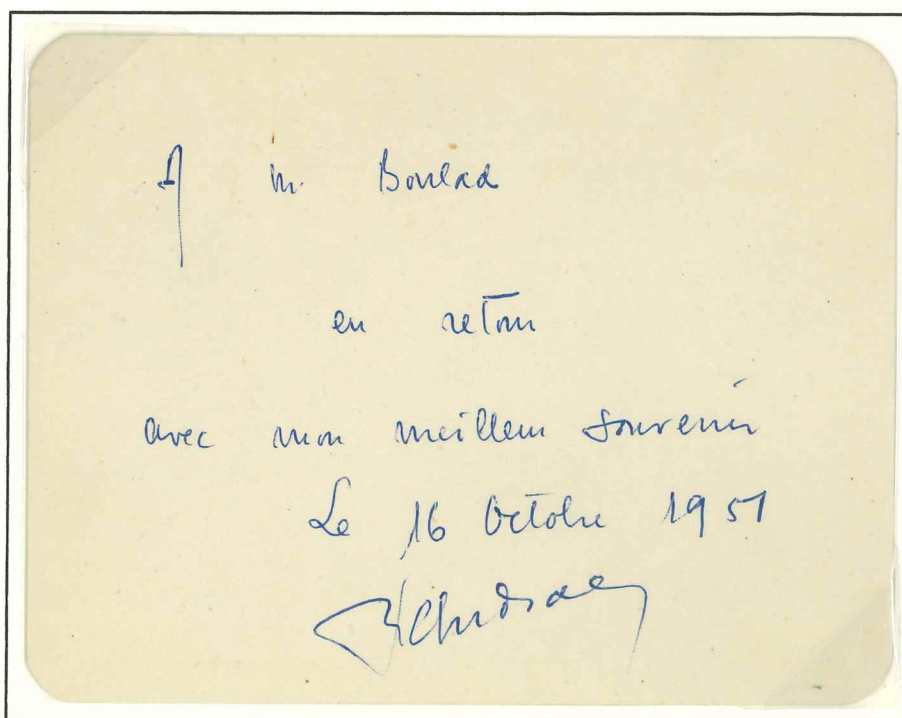 A M. Boulad
en retour
avec mon meilleur souvenir
Le 16 Octobre 1951